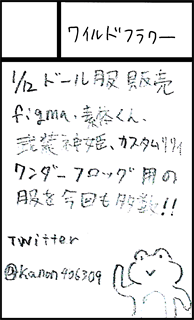 ワイルドフラワー
1/12ドール服販売
figma、素体くん、
武装神姫、カスタムリリィ
ワンダーフロッグ用の
服を今回も多数!!
Twitter
@kanon406309